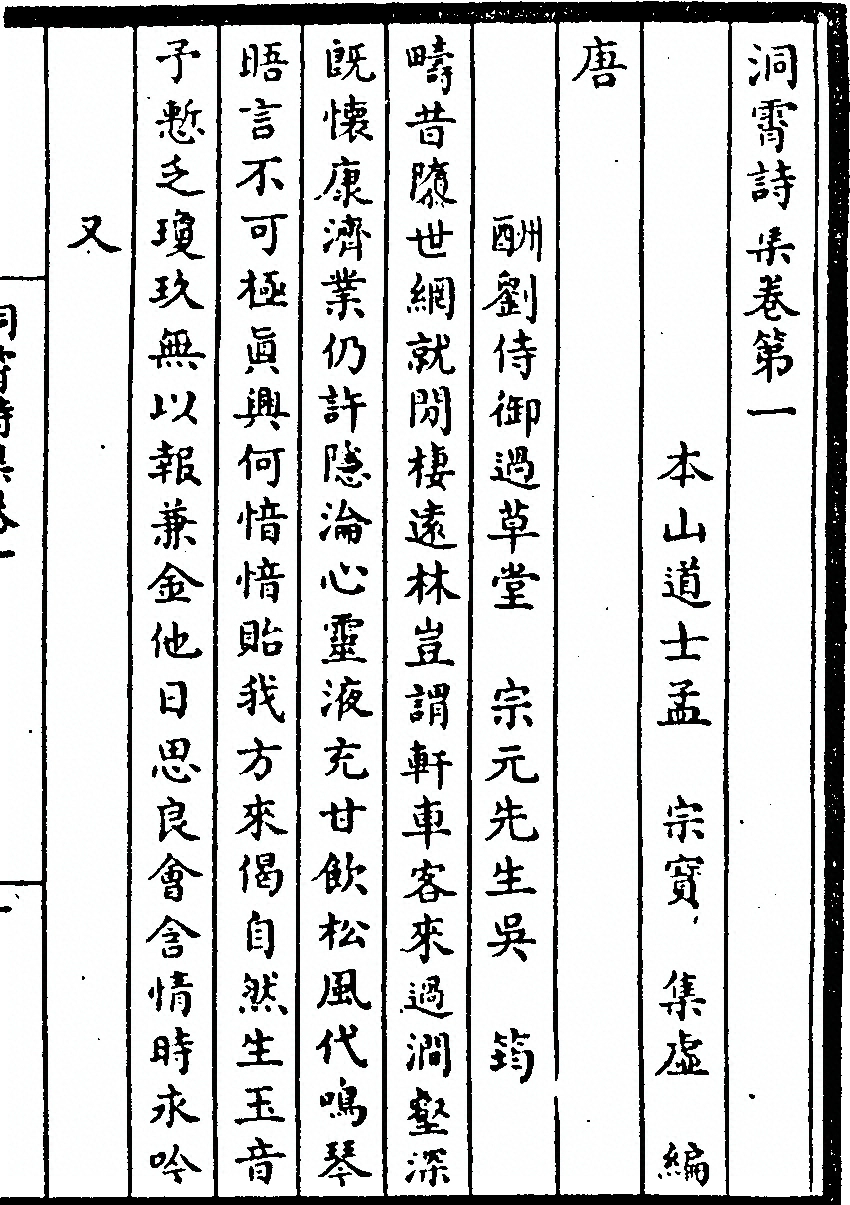 洞霄詩集卷第一
本山道士孟　宗寳　集虛　編
唐
酬劉侍御過草堂　宗元先生吳　筠
疇昔隳世網就閒棲遠林豈謂軒車客來過澗壑深
既懷康濟業仍許隱淪心靈液充甘飲松風代鳴琴
晤言不可極眞興何愔愔貽我方來偈自然生玉音
予慙乏瓊玖無以報兼金他日思良會含情時永吟
又
洞霄詩集卷一
一